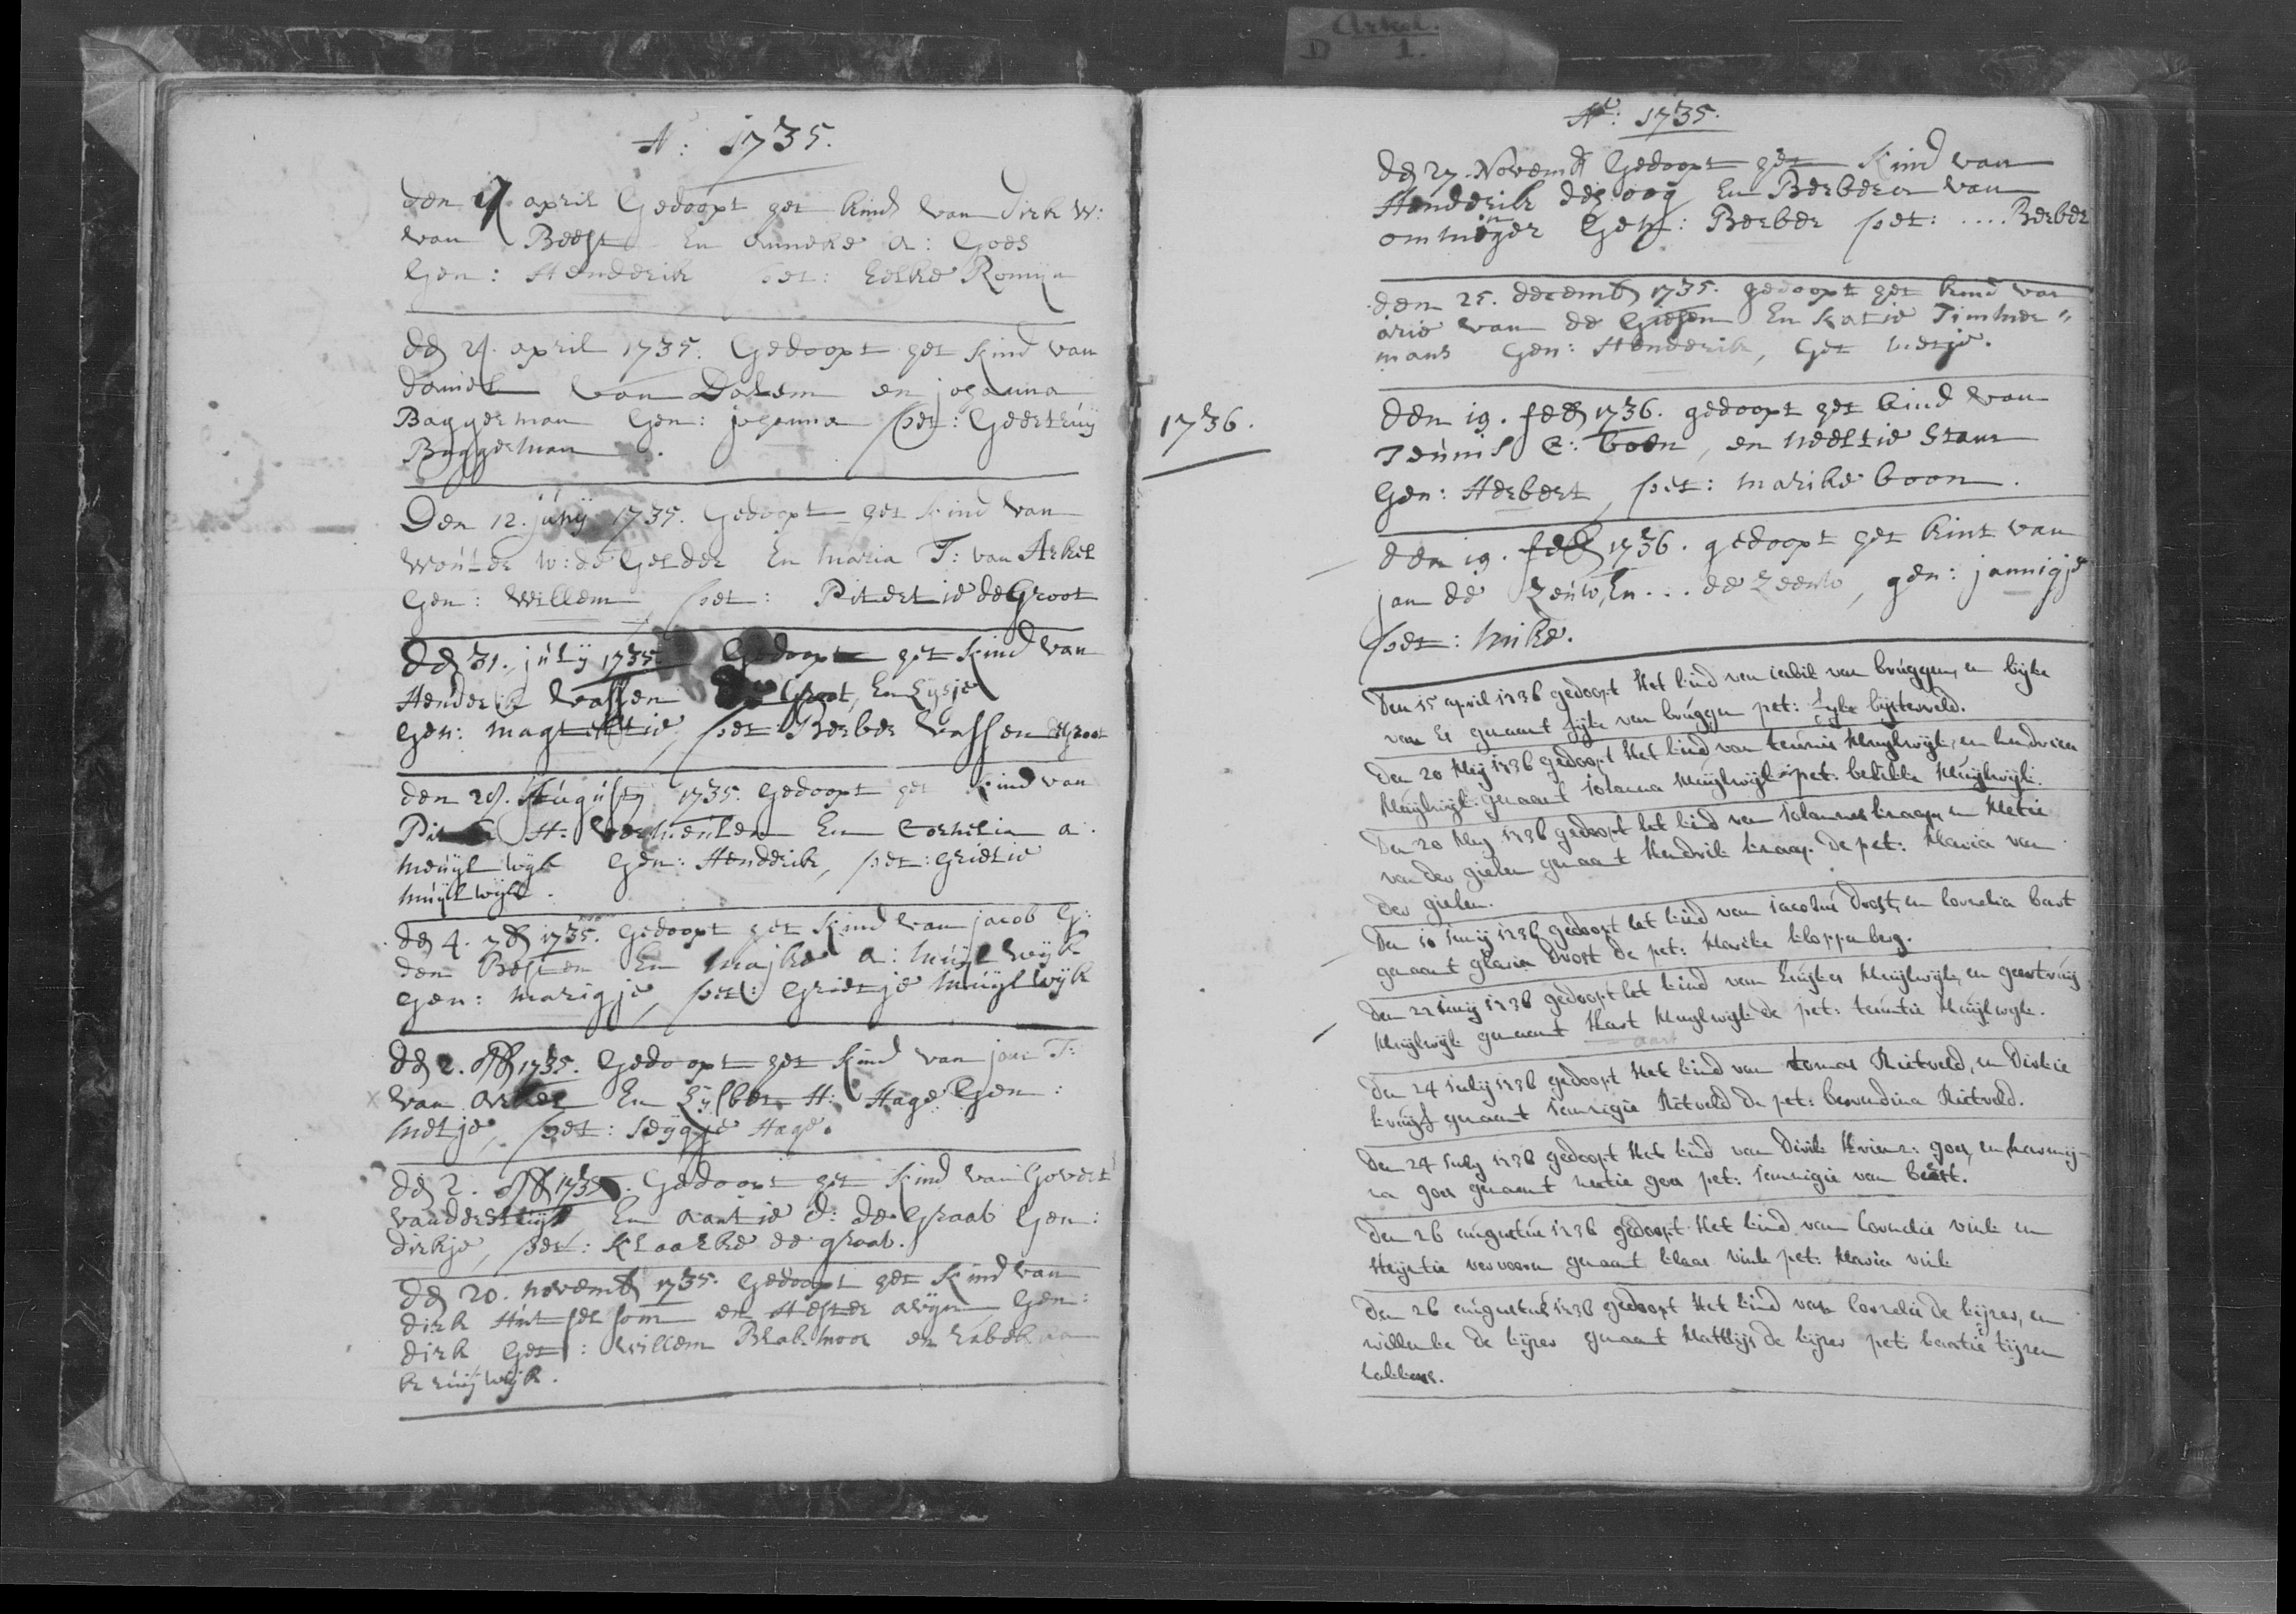 Arkel.
D 1.
A: 1735.
den 17 april Gedoopt het kind van Dirk W:
van Beest En anneke a: Goes
Gen: Henderik pet: Eelke Romijn
den 24. april 1735. Gedoopt het kind van
daniel van Dalem en johanna
Baggerman Gen: johanna pet: Geertruij
Baggerman.
Den 12. junij 1735. Gedoopt het kind van
Wouter w: de Gelder En Maria T: van Arkel
Gen: Willem, pet: Pietertie de Groot
den 31. julij 1735. Gedoopt het kind van
Henderik Vassen Groot, En Lysje
Gen: Magteltie, pet Berber Vassen de Groot
den 29. Augusty 1735. Gedoopt het kind van
H. Vermeulen En Cornelia a.
Meuijlwijk Gen: Henderik, pet: Grietie
Muijlwijk.
den 4. 7b 1735. Gedoopt het kind van jacob G:
den Besten En Majke a: Muijlwijk
Gen: Marigje, pet: Grietje Muijlwijk
den 2. 8b 1735. Gedoopt het kind van jan T:
van Arkel En Lijsbet H: Hage Gen:
Metje, pet: Seijgje Hage.
den 2. 8b 1735. Gedoopt het kind van Govert
vanderstuijt En Aantie d: de Graaf Gen:
dirkje, pet: Klaarke de graaf.
den 20. novemb 1735. Gedoopt het kind van
dirk en Hester Gen:
dirk Get: Willem Blakmoor en
kruijwijk.
A: 1735.
den 27. Novemb Gedoopt het kind van
Henderik de joog En Berbera van
ommeger Gen: Berber pet: .... Berber
den 25. decemb 1735. gedoopt het kind van
arie van de Giesen En Katie Timmer"
mans Gen: Henderik, Get Metje.
1736.
den 19. feb 1736. gedoopt het kind van
Teunis C: boon, en Neeltie Stam
Gen: Herbert, pet: Marike boon.
den 19. feb 1736. gedoopt het kint van
jan de Zeuw, En ... de Zeeuw, gen: jannigje
pet: Mike.
Den 15 april 1736 gedoopt Het kind van van bruggen, en lijke
van Es genaamt fijke van bruggen pet: fyke bijsterveld.
Den 20 Meij 1736 gedoopt Het kind van teunis Muijlwijk, en hendrica
Muijlwijk genaamt Johanna Muijlwijk pet: Muijlwijk.
Den 20 Meij 1736 gedoopt het kind van Johannes knaap en Metie
van der gielen genaamt Hendrik knaap. De pet: Maria van
der gielen.
Den 10 Junij 1736 gedoopt het kind van Jacobus Drost, en Cornelia bart
genaamt Drost de pet: Marike kloppenberg.
Den 22 Junij 1736 gedoopt het kind van Muijlwijk, en geertruij
Muijlwijk genaamt Hart Muijlwijk de pet: teuntie Muijlwijk.
aart
Den 24 Julij 1736 gedoopt Het kind van tomas Rietveld, en Dirkie
kruijt genaamt Jannigie Ritveld de pet: berendina Rietveld.
Den 24 July 1736 gedoopt Het kind van Dirik goes, en harmij-
na goes genaamt neetie goes pet: Jannigie van beest.
Den 26 augustus 1736 gedoopt Het kind van Cornelis vink en
Heijntie vervoorn genaamt klaas vink pet: Maria vink
Den 26 augustus 1736 gedoopt Het kind van Cornelis de kijzer, en
willemke de kijzer genaamt Matthijs de kijzer pet: tijzen